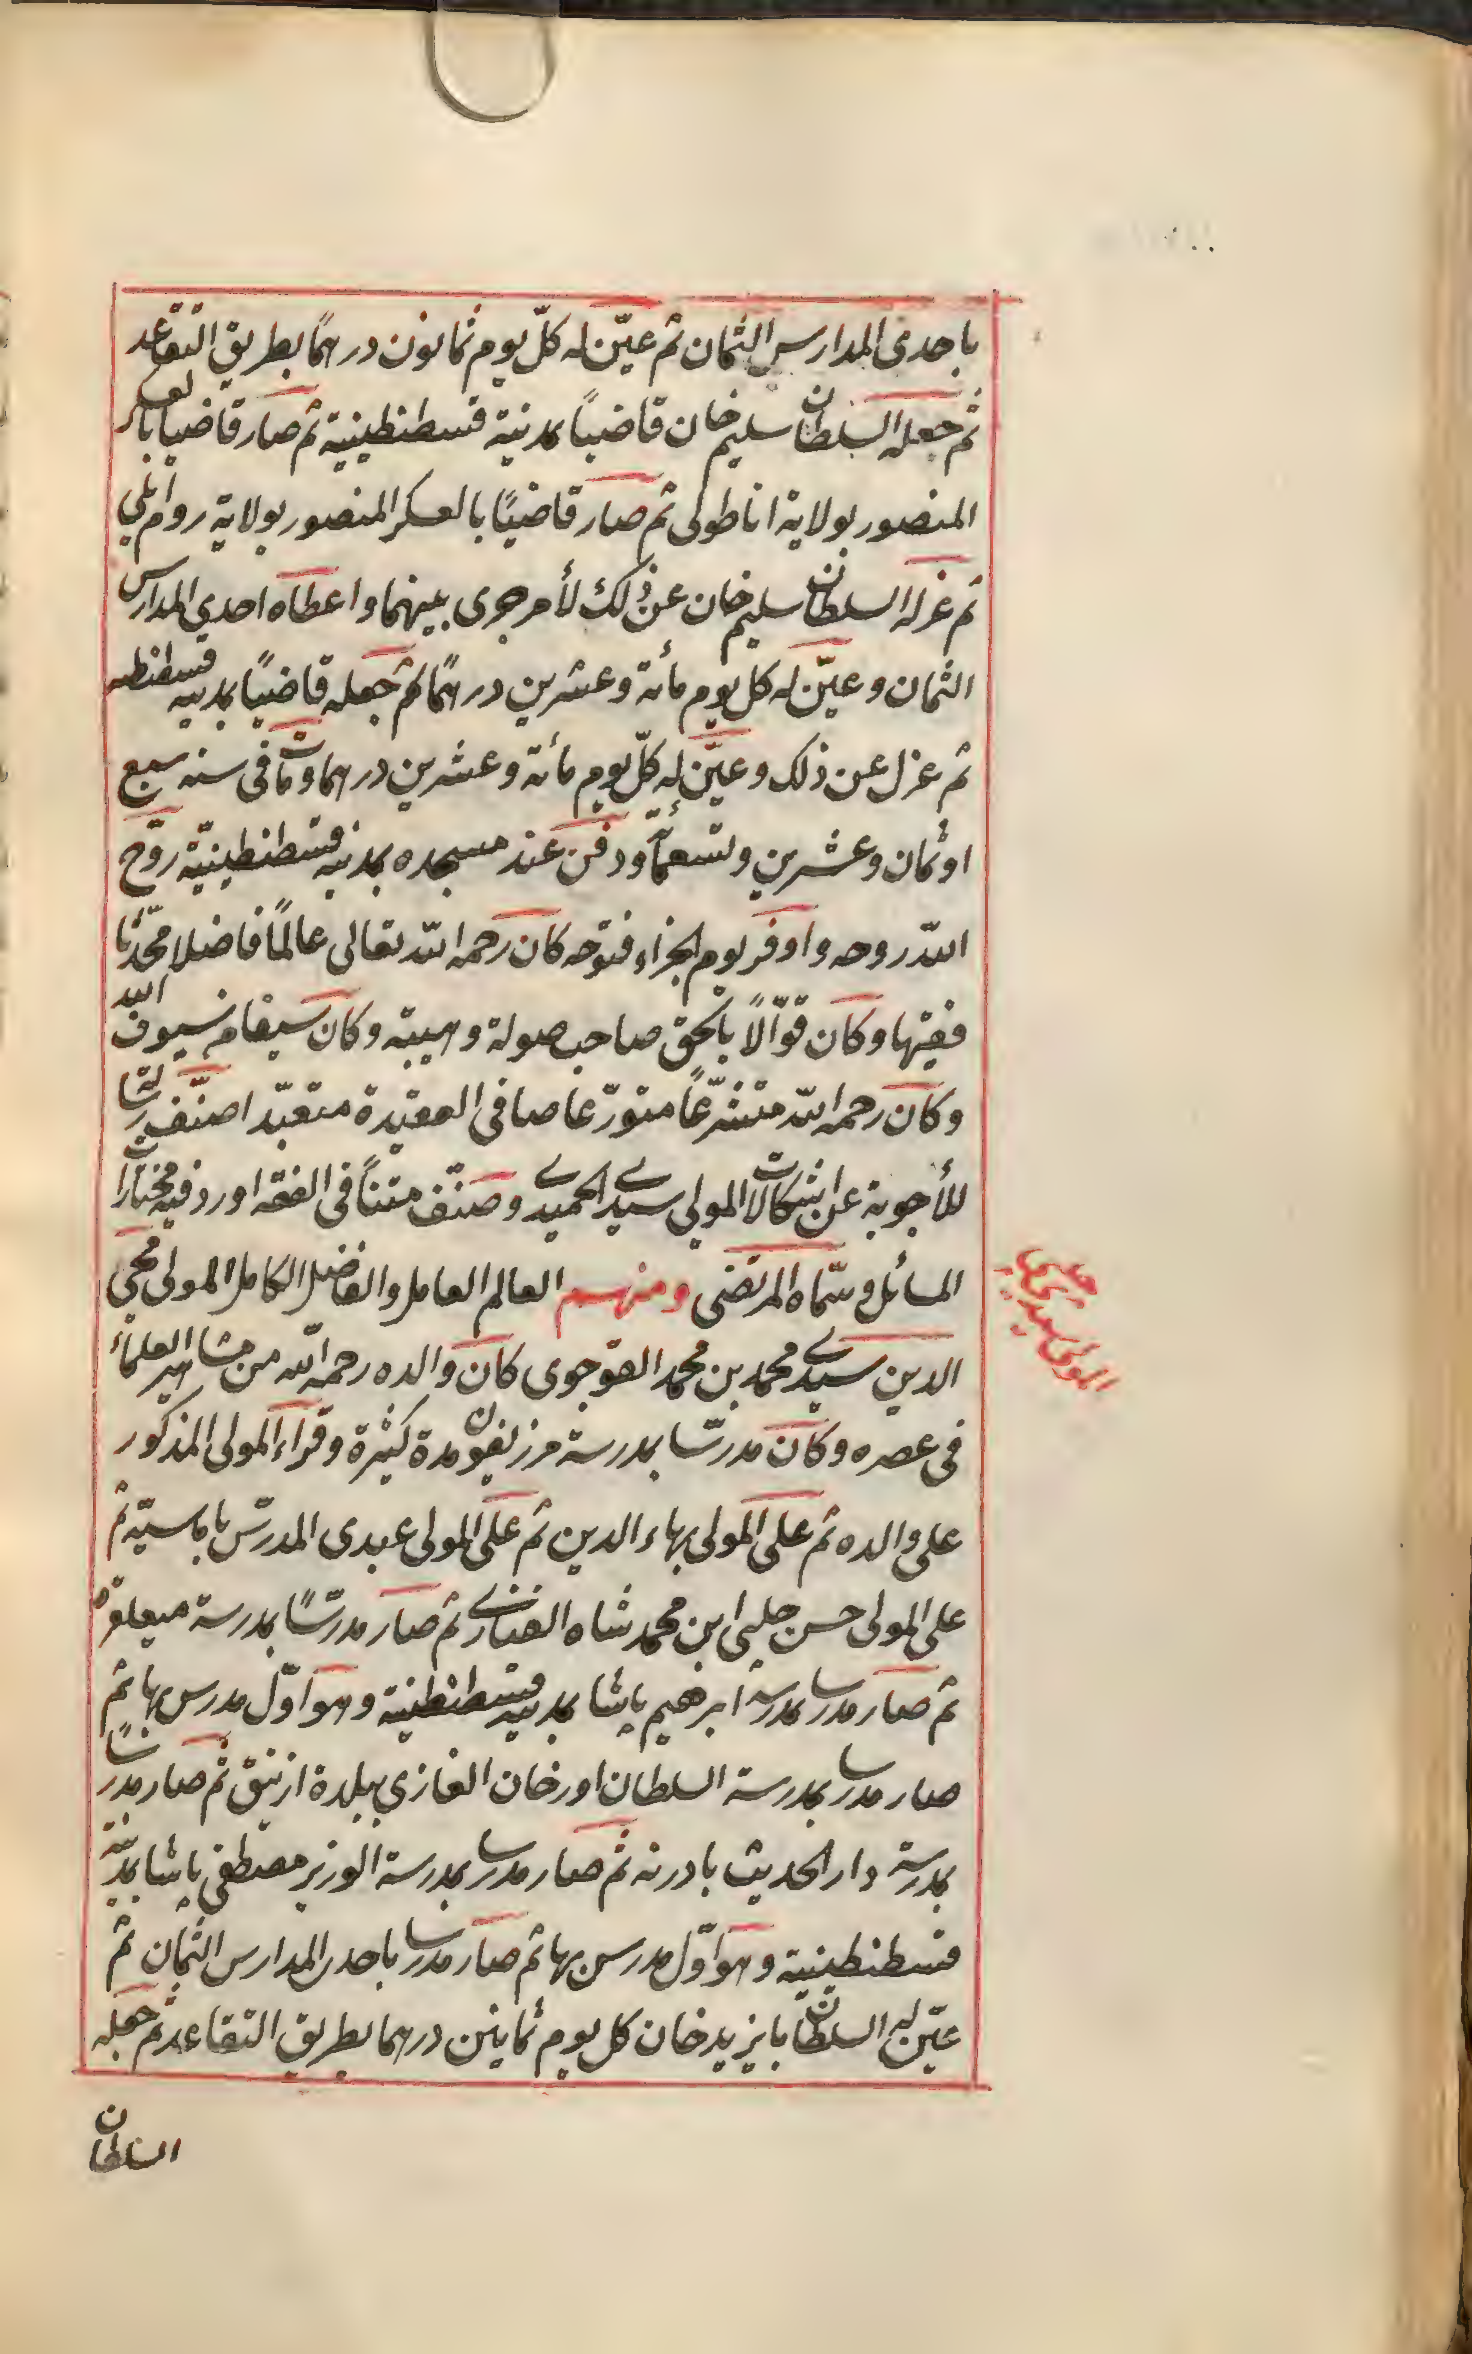 باحدى المدارس الثمان ثم عيّن له كلّ يوم ثمانون درهمًا بطريق التقاعد
ثم جعله السلطان سليم خان قاضيًا بمدينة قسطنطينية ثم صار قاضيا بالعسكر
المنصور بولاية اناطولى ثم صار قاضيًا بالعسكر المنصور بولاية روم ايلي
ثم عزله السلطان سليم خان عن ذلك لأمر جرى بينهما واعطاه احدى المدارس
الثمان وعيّن له كل يوم مأنة وعشرين درهمًا ثم جعله قاضيًا بمدينه قسطنطنيه
ثم عزل عن ذلك وعيّن له كلّ يوم مأنة وعشرين درهما ومات فى سنه سبع
او ثمان وعشرين وتسعمأة ودفن عند مسجده بمدينه قسطنطينيّة روّح
اللّه روحه واوفر يوم الجزاء فتوحه كان رحمه اللّه تعالى عالمًا فاضلا محدّثا
فقيها وكان قوّالًا بالحقّ صاحب صولة وهيبته وكان سيفا من سيوف اللّه
وكان رحمه اللّه متشرّعًا متورّعا صافى العقيدة متعبّدا صنّف رسالة
للأجوبة عن اشكالات المولى سيدى الحميدى وصنّف متنًا فى الفقه اورد فيه مختارات
المسائل وسمّاه المرتضى ومنهم العالم العامل والفاضل الكامل المولى محيى
الدين سيدى محمد بن محمد القوجوى كان والده رحمه اللّه من مشاهير العلماء
فى عصره وكان مدرّسا بمدرسة مرزيفون مدة كثيرة وقراء المولى المذكور
على والده ثم على المولى بهاء الدين ثم على المولى عبدى المدرّس باماسيّة ثم
على المولى حسن جلبى ابن محمد شاه الفنارى ثم صار مدرّسًا بمدرسة ميعلقره
ثم صار مدرسا بمدرسة ابرهيم پاشا بمدينه قسطنطينية وهو اوّل مدرس بها ثم
صار مدرسا بمدرسة السلطان اورخان الغازي ببلدة ازنيق ثم صار مدرسا
بمدرسة دار الحديث بادرنه ثم صار مدرسا بمدرسة الوزير مصطفى پاشا بمدينة
قسطنطينية وهو اوّل مدرس بها ثم صار مدرسا باحدى المدارس الثمان ثم
عيّن له السلطان بايزيد خان كل يوم ثمانين درهما بطريق التقاعد ثم جعله
السلطان
المولى سيدى